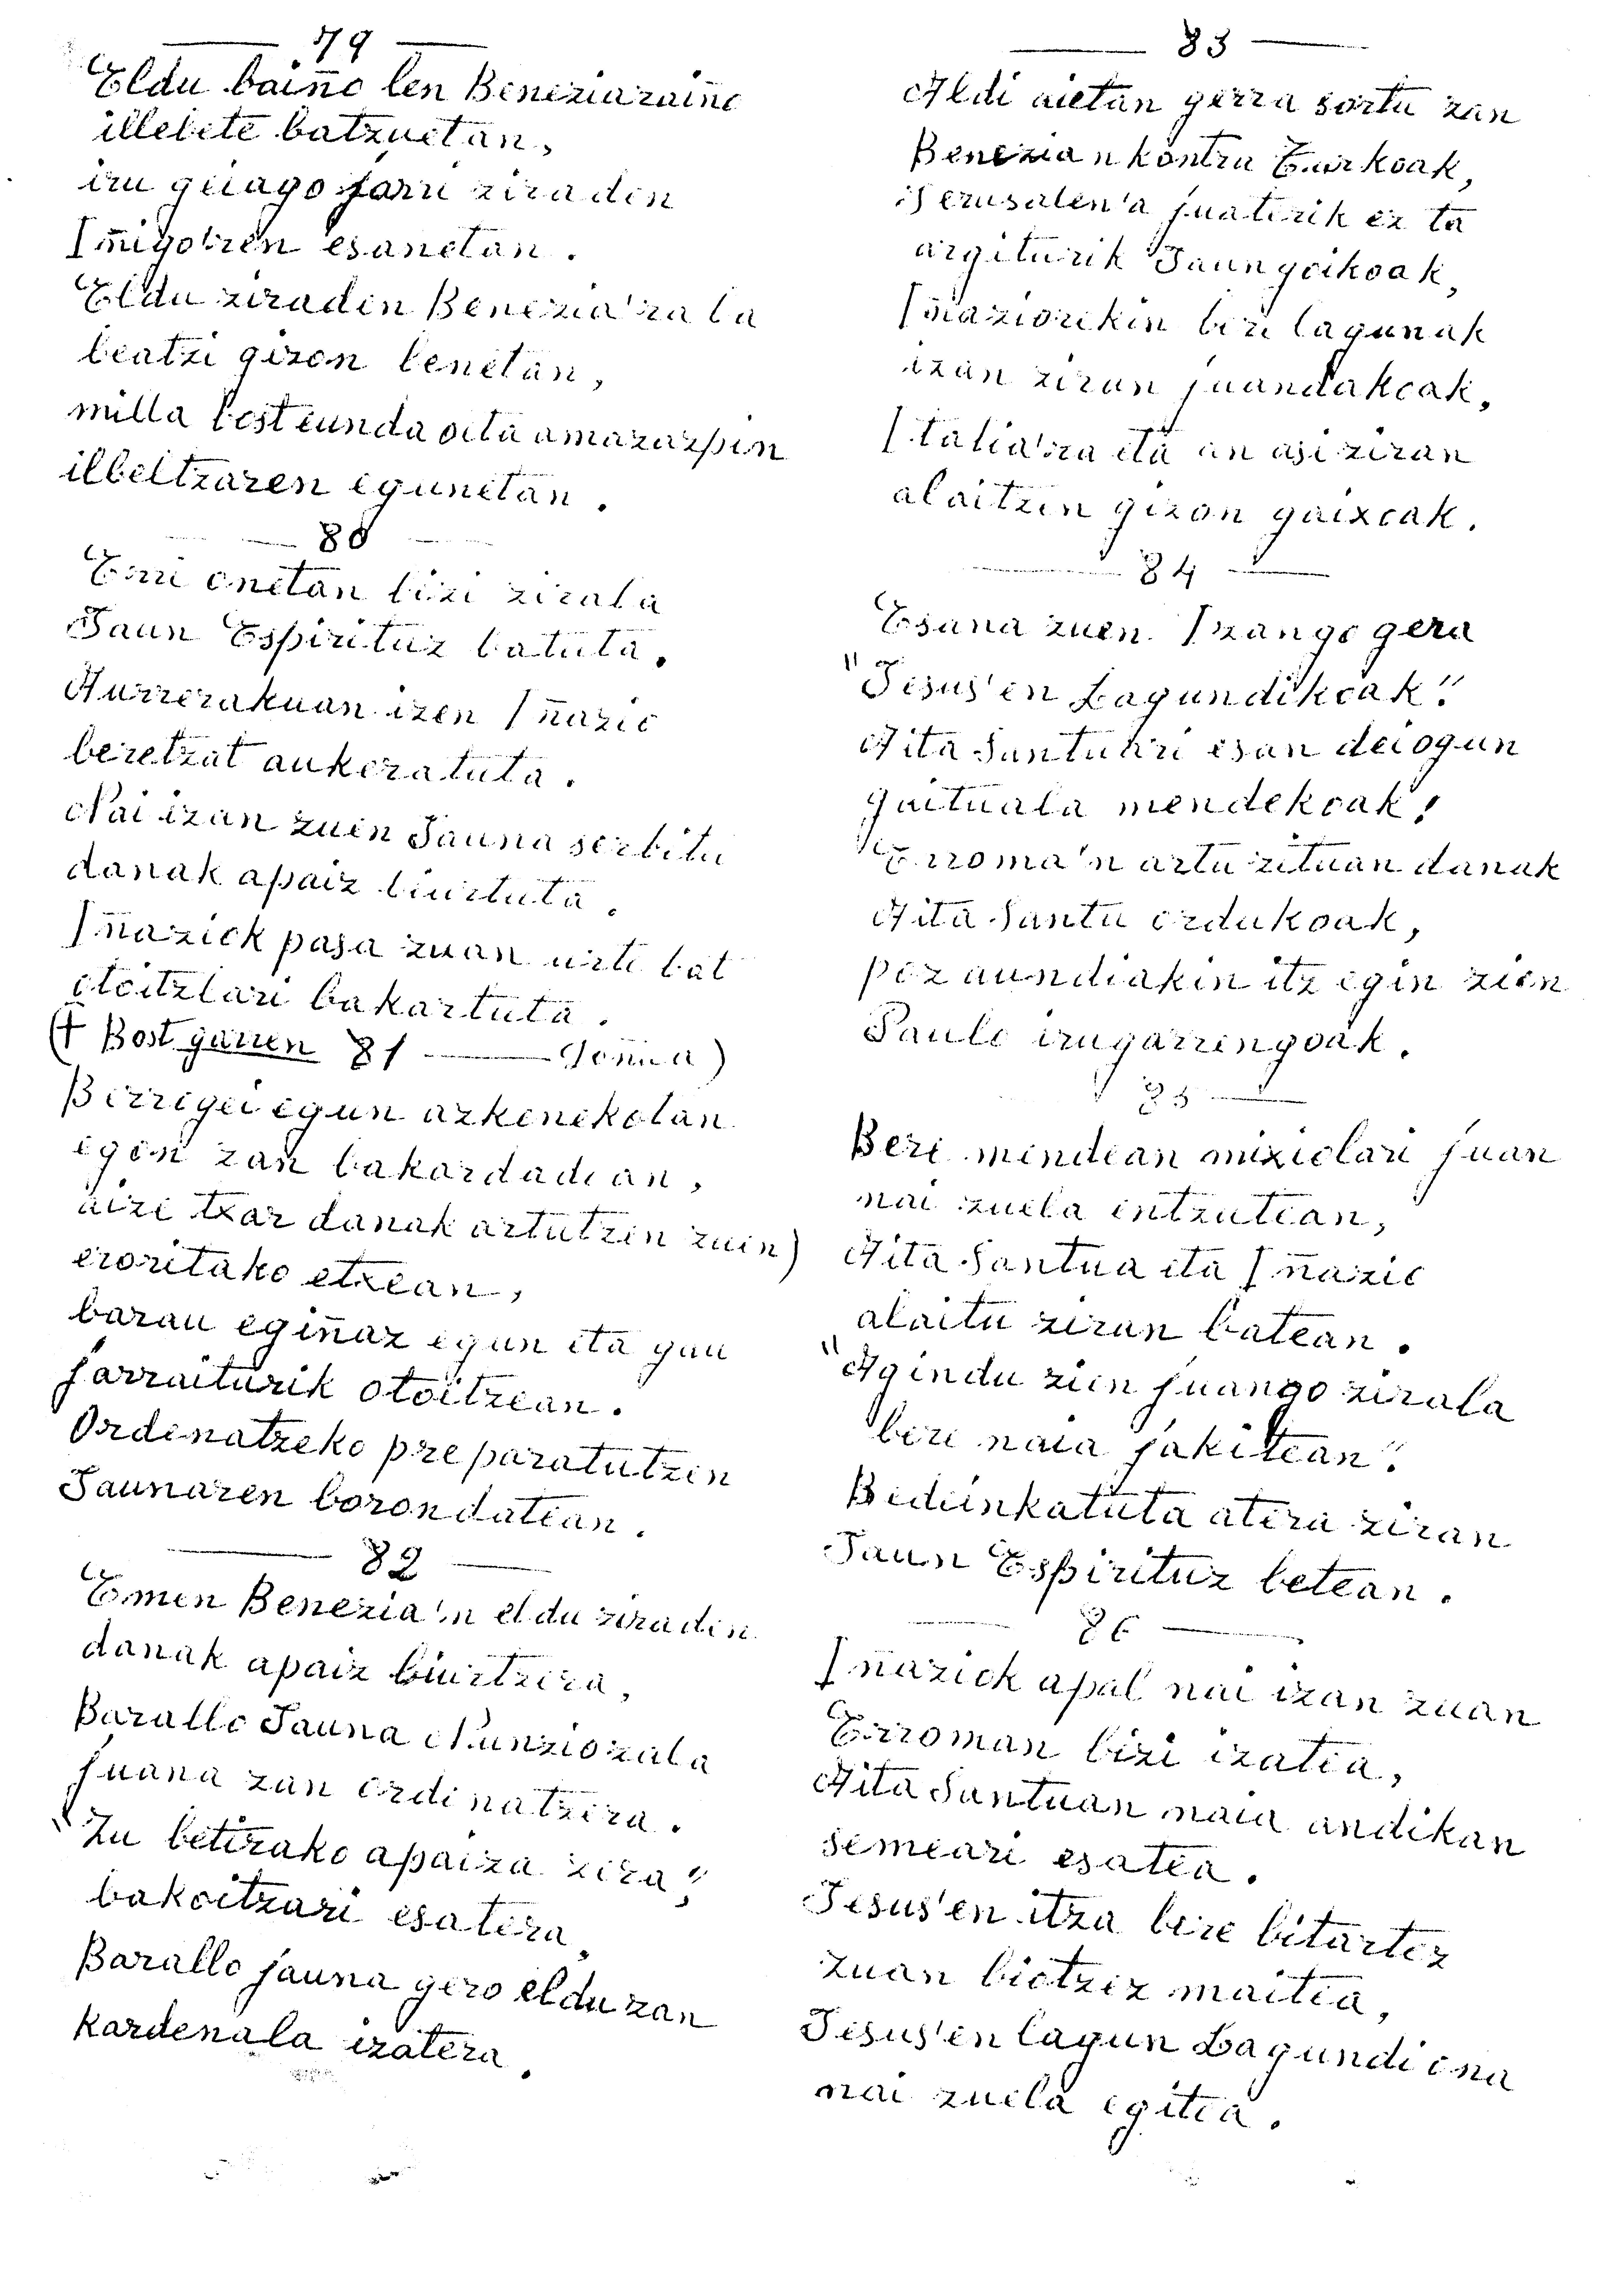 79
Eldu baiño len Beneziaraiño
illebete batzuetan,
iru geiago jarri ziraden
Iñigo'ren esanetan.
Eldu ziraden Benezia'ra la
beatzi gizon benetan,
milla bosteunda oita amazazpin
ilbeltzaren egunetan.
80
Erri onetan bizi zirala
Jaun Espirituz batuta.
Aurrerakuan izen Iñazio
beretzat aukeratuta.
Nai izan zuen Jauna serbitu
danak apaiz biurtuta.
Iñaziok pasa zuan urte bat
otoitzlari bakartuta.
(† Bost garren 81 Gonua)
Berrogei egun azkenekotan
egon zan bakardadean,
aize txar danak artutzen zuen)
eroritako etxean,
barau egiñaz egun eta gau
jarraiturik otoitzean.
Ordenatzeko preparatutzen
Jaunaren borondatean.
82
Emen Benezia'n eldu ziraden
danak apaiz biurtzera,
Barallo Jauna Nunziozala
juana zan ordenatzera.
"Zu betirako apaiza zera",
bakoitzari esatera,
Barallo jauna gero eldu zan
kardenala izatera.
83
Aldi aietan gerra sortu zan
Benezian kontra Turkoak,
Jerusalen'a juaterik ez ta
argiturik Jaungoikoak,
Iñaziorekin bere lagunak
izan ziran juandakoak,
Italia'ra eta an asi ziran
alaitzen gizon gaixoak.
84
Esana zuen. Izango gera
"Jesus'en Lagundikoak".
Aita Santuari esan deiogun
gaituala mendekoak!
Erroma'n artu zituan danak
Aita Santu ordukoak,
poz aundiakin itz egin zien
Paulo irugarrengoak.
85
Bere mendean mixiolari juan
nai zuela entzutean,
Aita Santua eta Iñazio
alaitu ziran batean.
"Agindu zien juango zirala
bere naia jakitean".
Bedeinkatuta atera ziran
Jaun Espirituz betean.
86
Iñaziok apal nai izan zuan
Erroman bizi izatea,
Aita Santuan naia andikan
semeari esatea.
Jesus'en itza bere bitartez
zuan biotzez maitea,
Jesus'en lagun Lagundi ona
nai zuela egitea.